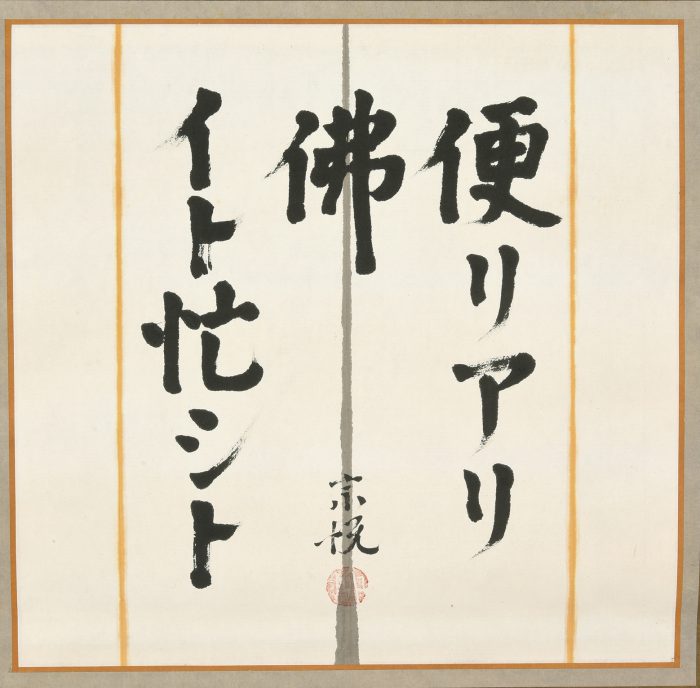 便リアリ
佛
イト忙シト
宗悦